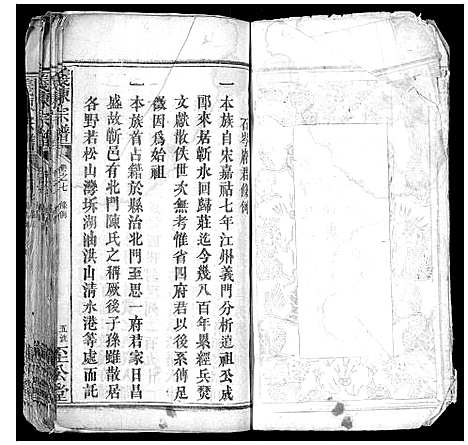 石岑府君條例
一本族自宋嘉祐七年江州義門分析遺祖公成
郎來居蘄水回歸莊迄今幾八百年累經兵焚
文獻散佚世次無考惟省四府君以後系傳足
徵因爲始祖
一本族首占籍於縣治北門至思一府君家日昌
盛故蘄邑有北門陳氏之稱厥後子孫雖散居
各野若松山灣坼湖油洪山清水港等處而託
義陳宗譜
卷之七 條例
五派 至公堂